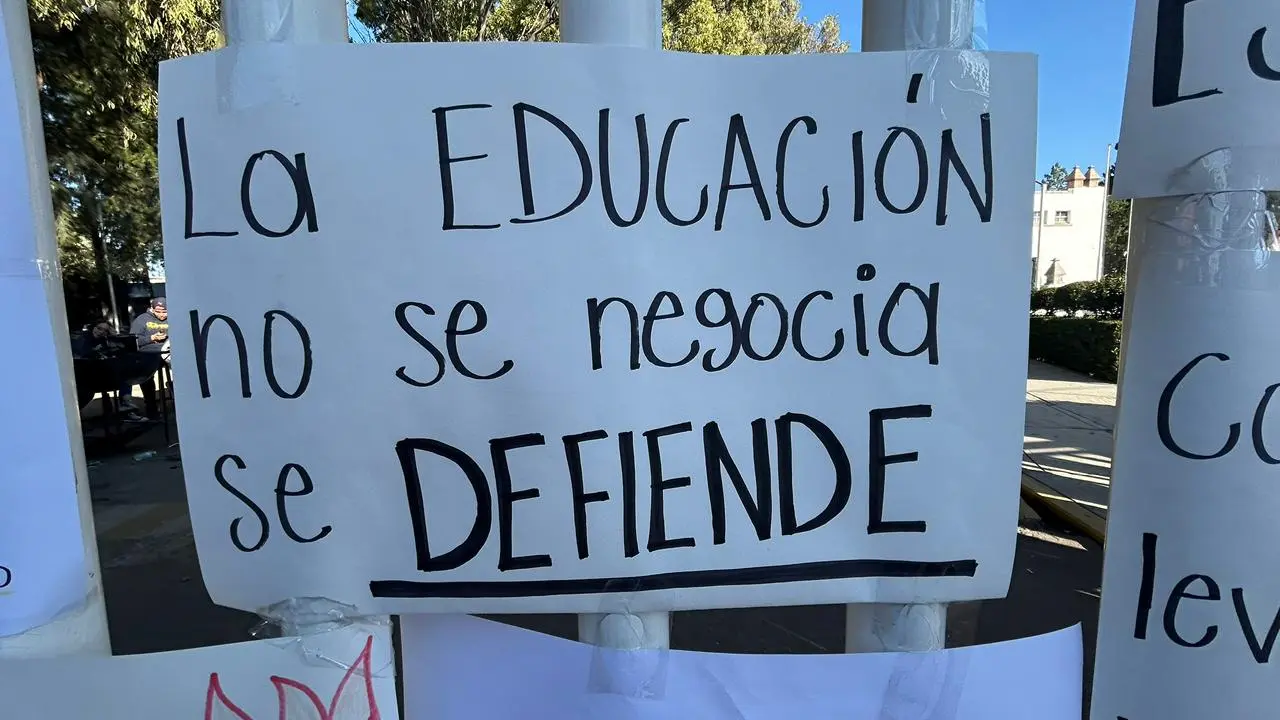 La EDUCACIÓN
no se negocia
se DEFIENDE